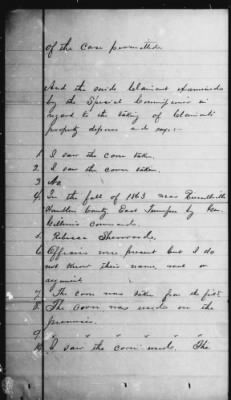 of the case permitted
And the said Claimant examined
by the Special Commissioner in
regard to the taking of Claimants
property deposes and says:-
1. I saw the corn taken.
2. I saw the corn taken.
3. No.
4. In the fall of 1863 near Russellville
Hamblen County East Tennessee by Gen
command.
5. Rebecca
6. Officers were present but I do
not know their names, rank or
regiment.
7. The corn was taken from the field.
8. The corn was used on the
premises.
9. " " " " "
10. I saw the corn used. The